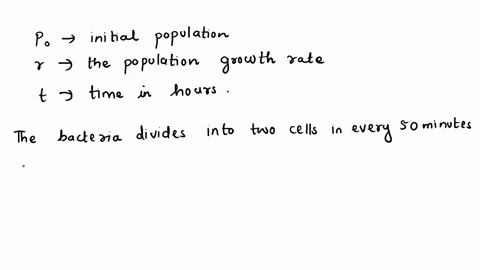 P₀ → initial population
r → the population growth rate
t → time in hours.
The bacteria divides into two cells in every 50 minutes
.